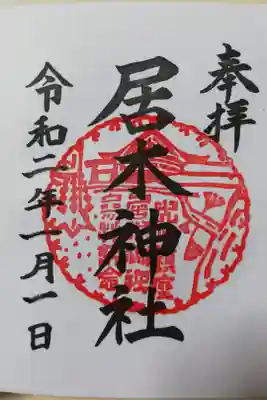 奉拝
居木神社
令和二年一月一日